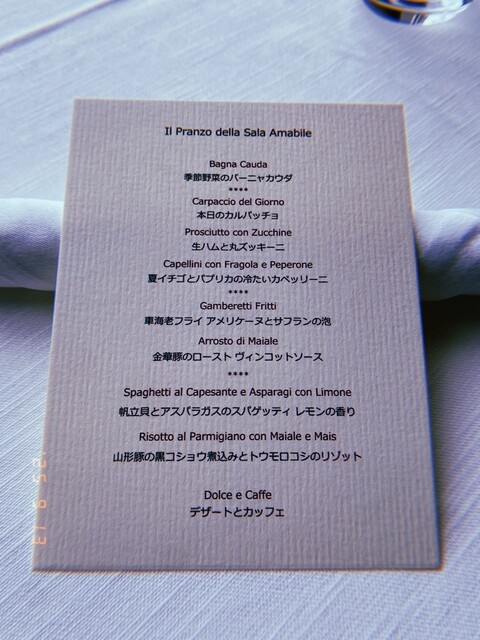 Il Pranzo della Sala Amabile
Bagna Cauda
季節野菜のバーニャカウダ
****
Carpaccio del Giorno
本日のカルパッチョ
Prosciutto con Zucchine
生ハムと丸ズッキーニ
Capellini con Fragola e Peperone
夏イチゴとパプリカの冷たいカペッリーニ
****
Gamberetti Fritti
車海老フライ アメリケーヌとサフランの泡
Arrosto di Maiale
金華豚のロースト ヴィンコットソース
****
Spaghetti al Capesante e Asparagi con Limone
帆立貝とアスパラガスのスパゲッティ レモンの香り
Risotto al Parmigiano con Maiale e Mais
山形豚の黒コショウ煮込みとトウモロコシのリゾット
Dolce e Caffe
デザートとカッフェ
'25 9 13